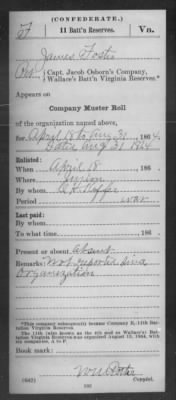 (CONFEDERATE.)
F 11 Batt'n Reserves. Va.
James Foster
Pvt., Capt. Jacob Osborn's Company,
Wallace's Batt'n Virginia Reserves.*
Appears on
Company Muster Roll
of the organization named above,
for April 18 to Aug 31, 1864.
Dated Aug 31 1864
Enlisted:
When April 18, 186 .
Where
By whom
Period war
Last paid:
By whom
To what time , 186 .
Present or absent Absent
Remarks: Not reported since
organization
*This company subsequently became Company E, 11th Battalion Virginia Reserves.
The 11th (also known as the 4th and as Wallace's) Battalion Virginia Reserves was organized August 13, 1864, with six companies, A to F.
Book mark:
(642) Copyist.